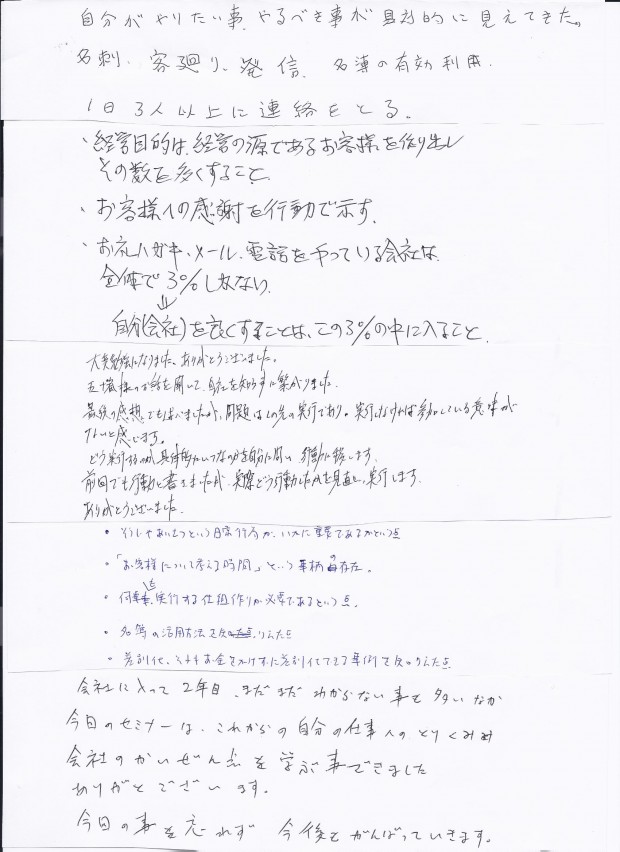 自分がやりたい事、やるべき事が具体的に見えてきた。
名刺、客廻り、発信、名簿の有効利用.
1日3人以上に連絡をとる.
・経営目的は、経営の源であるお客様を作り出し
その数を多くすること.
・お客様への感謝を行動で示す.
・お礼ハガキ、メール、電話をやっている会社は.
全体で3%しかない.
⇓
自分(会社)を良くすることは、この3%の中に入ること.
大変勉強になりました。ありがとうございました。
話を聞いて、自社を知らずに繋がりました.
最後の感想でも述べましたが、問題はこの先の実行であり。実行しなければ参加している意味が
ないと感じます。
どう実行するのか、具体的にいつなのかを自分に問い 行動に移します.
前回でも行動と書きましたが、実際どう行動したかを見直し、実行します.
ありがとうございました.
• そうじやあいさつという日常行為が、いかに重要であるかという点
• 「お客様について考える時間」という事柄の存在。
• 何事も実行する仕組作りが必要であるという点.
• 名簿の活用方法を
• 差別化、そもそもお金をかけずに差別化できる事例を
会社に入って2年目、まだまだわからない事も多いなか
今日のセミナーは、これからの自分の仕事へのとりくみ
会社のかいぜん点を学ぶ事できました
ありがとございます。
今日の事を忘れず 今後もがんばっていきます。